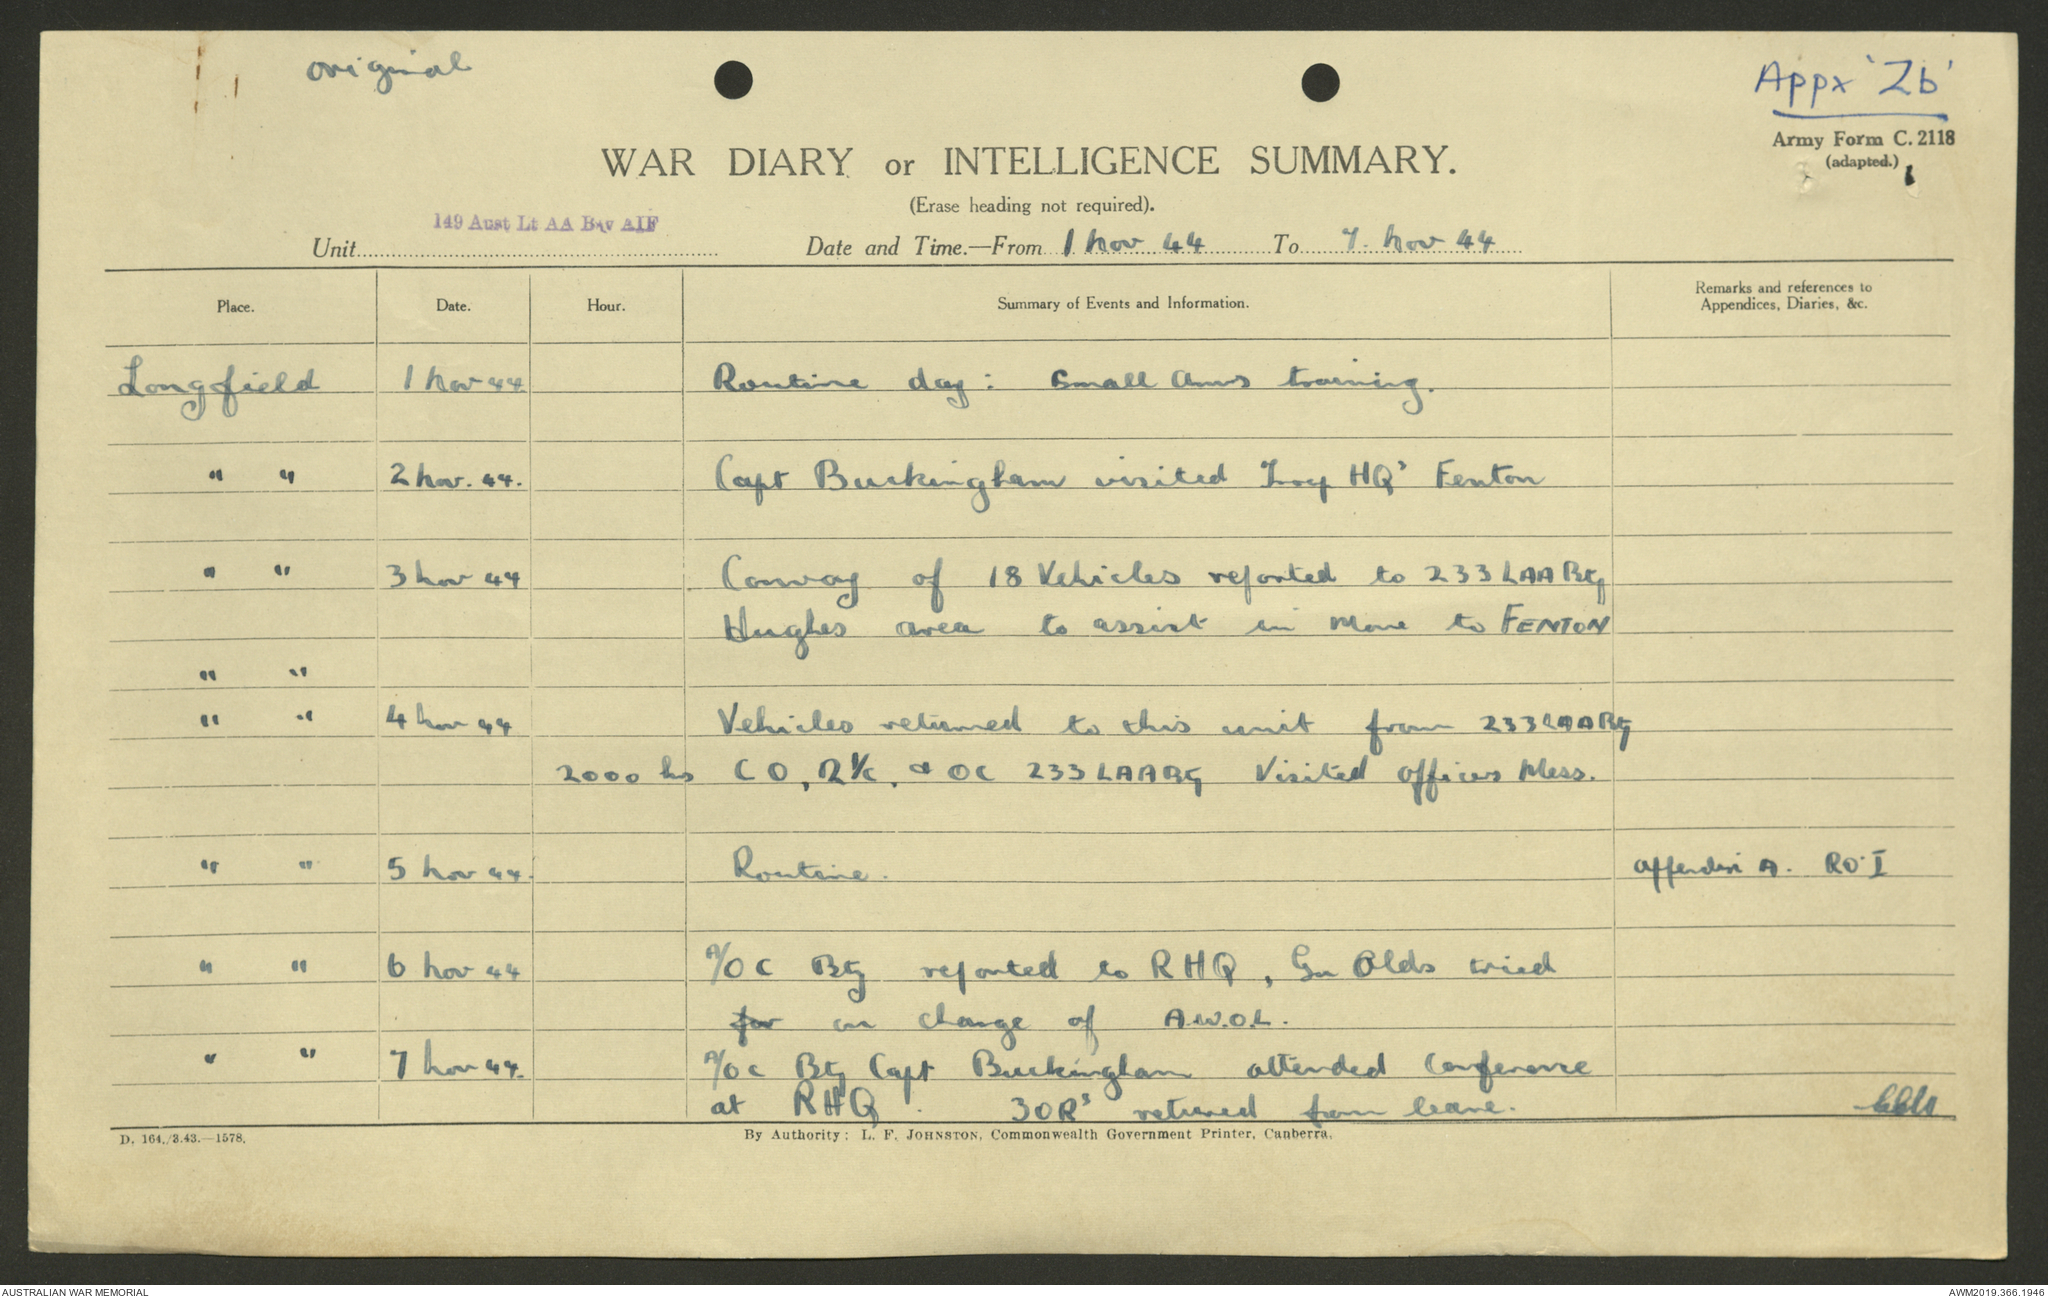 original
Appx 'Zb'
Army Form C. 2118
(adapted.)
WAR DIARY or INTELLIGENCE SUMMARY.
(Erase heading not required).
Unit 149 Aust Lt AA Bty AIF Date and Time.—From 1 Nov 44 To 7. Nov 44
Place. Date. Hour. Summary of Events and Information. Remarks and references to
Appendices, Diaries, &c.
Longfield 1 Nov 44 Routine day: Small Arms training.
" " 2 Nov. 44. Capt Buckingham visited HQs Fenton
" " 3 Nov 44 Convoy of 18 Vehicles reported to 233 LAA Bty
Hughes area to assist in move to FENTON
" "
" " 4 Nov 44 Vehicles returned to this unit from 233 LAA Bty
2000 hrs CO, 2 I/c, & OC 233 LAA Bty Visited officers Mess.
" " 5 Nov 44. Routine. Appendix A. RO I
" " 6 Nov 44 A/OC Bty reported to RHQ, Gnr Olds tried
for on charge of A.W.O.L.
" " 7 Nov 44. A/OC Bty Capt Buckingham attended Conference
at RHQ. 3 ORs returned from leave.
D. 164./3.43.—1578. By Authority: L. F. JOHNSTON, Commonwealth Government Printer, Canberra.
AUSTRALIAN WAR MEMORIAL AWM2019.366.1946